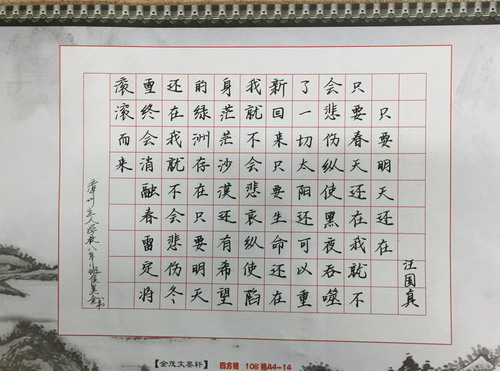 只要明天还在
汪国真
只要春天还在我就不
会悲伤纵使黑夜吞噬
了一切太阳还可以重
新回来只要生命还在
我就不会悲哀纵使陷
身茫茫沙漠还有希望
的绿洲存在只要明天
还在我就不会悲伤冬
雪终会消融春雷定将
滚滚而来
漳州立人学校八年
【金茂文墨轩】 四方格 108格A4-14